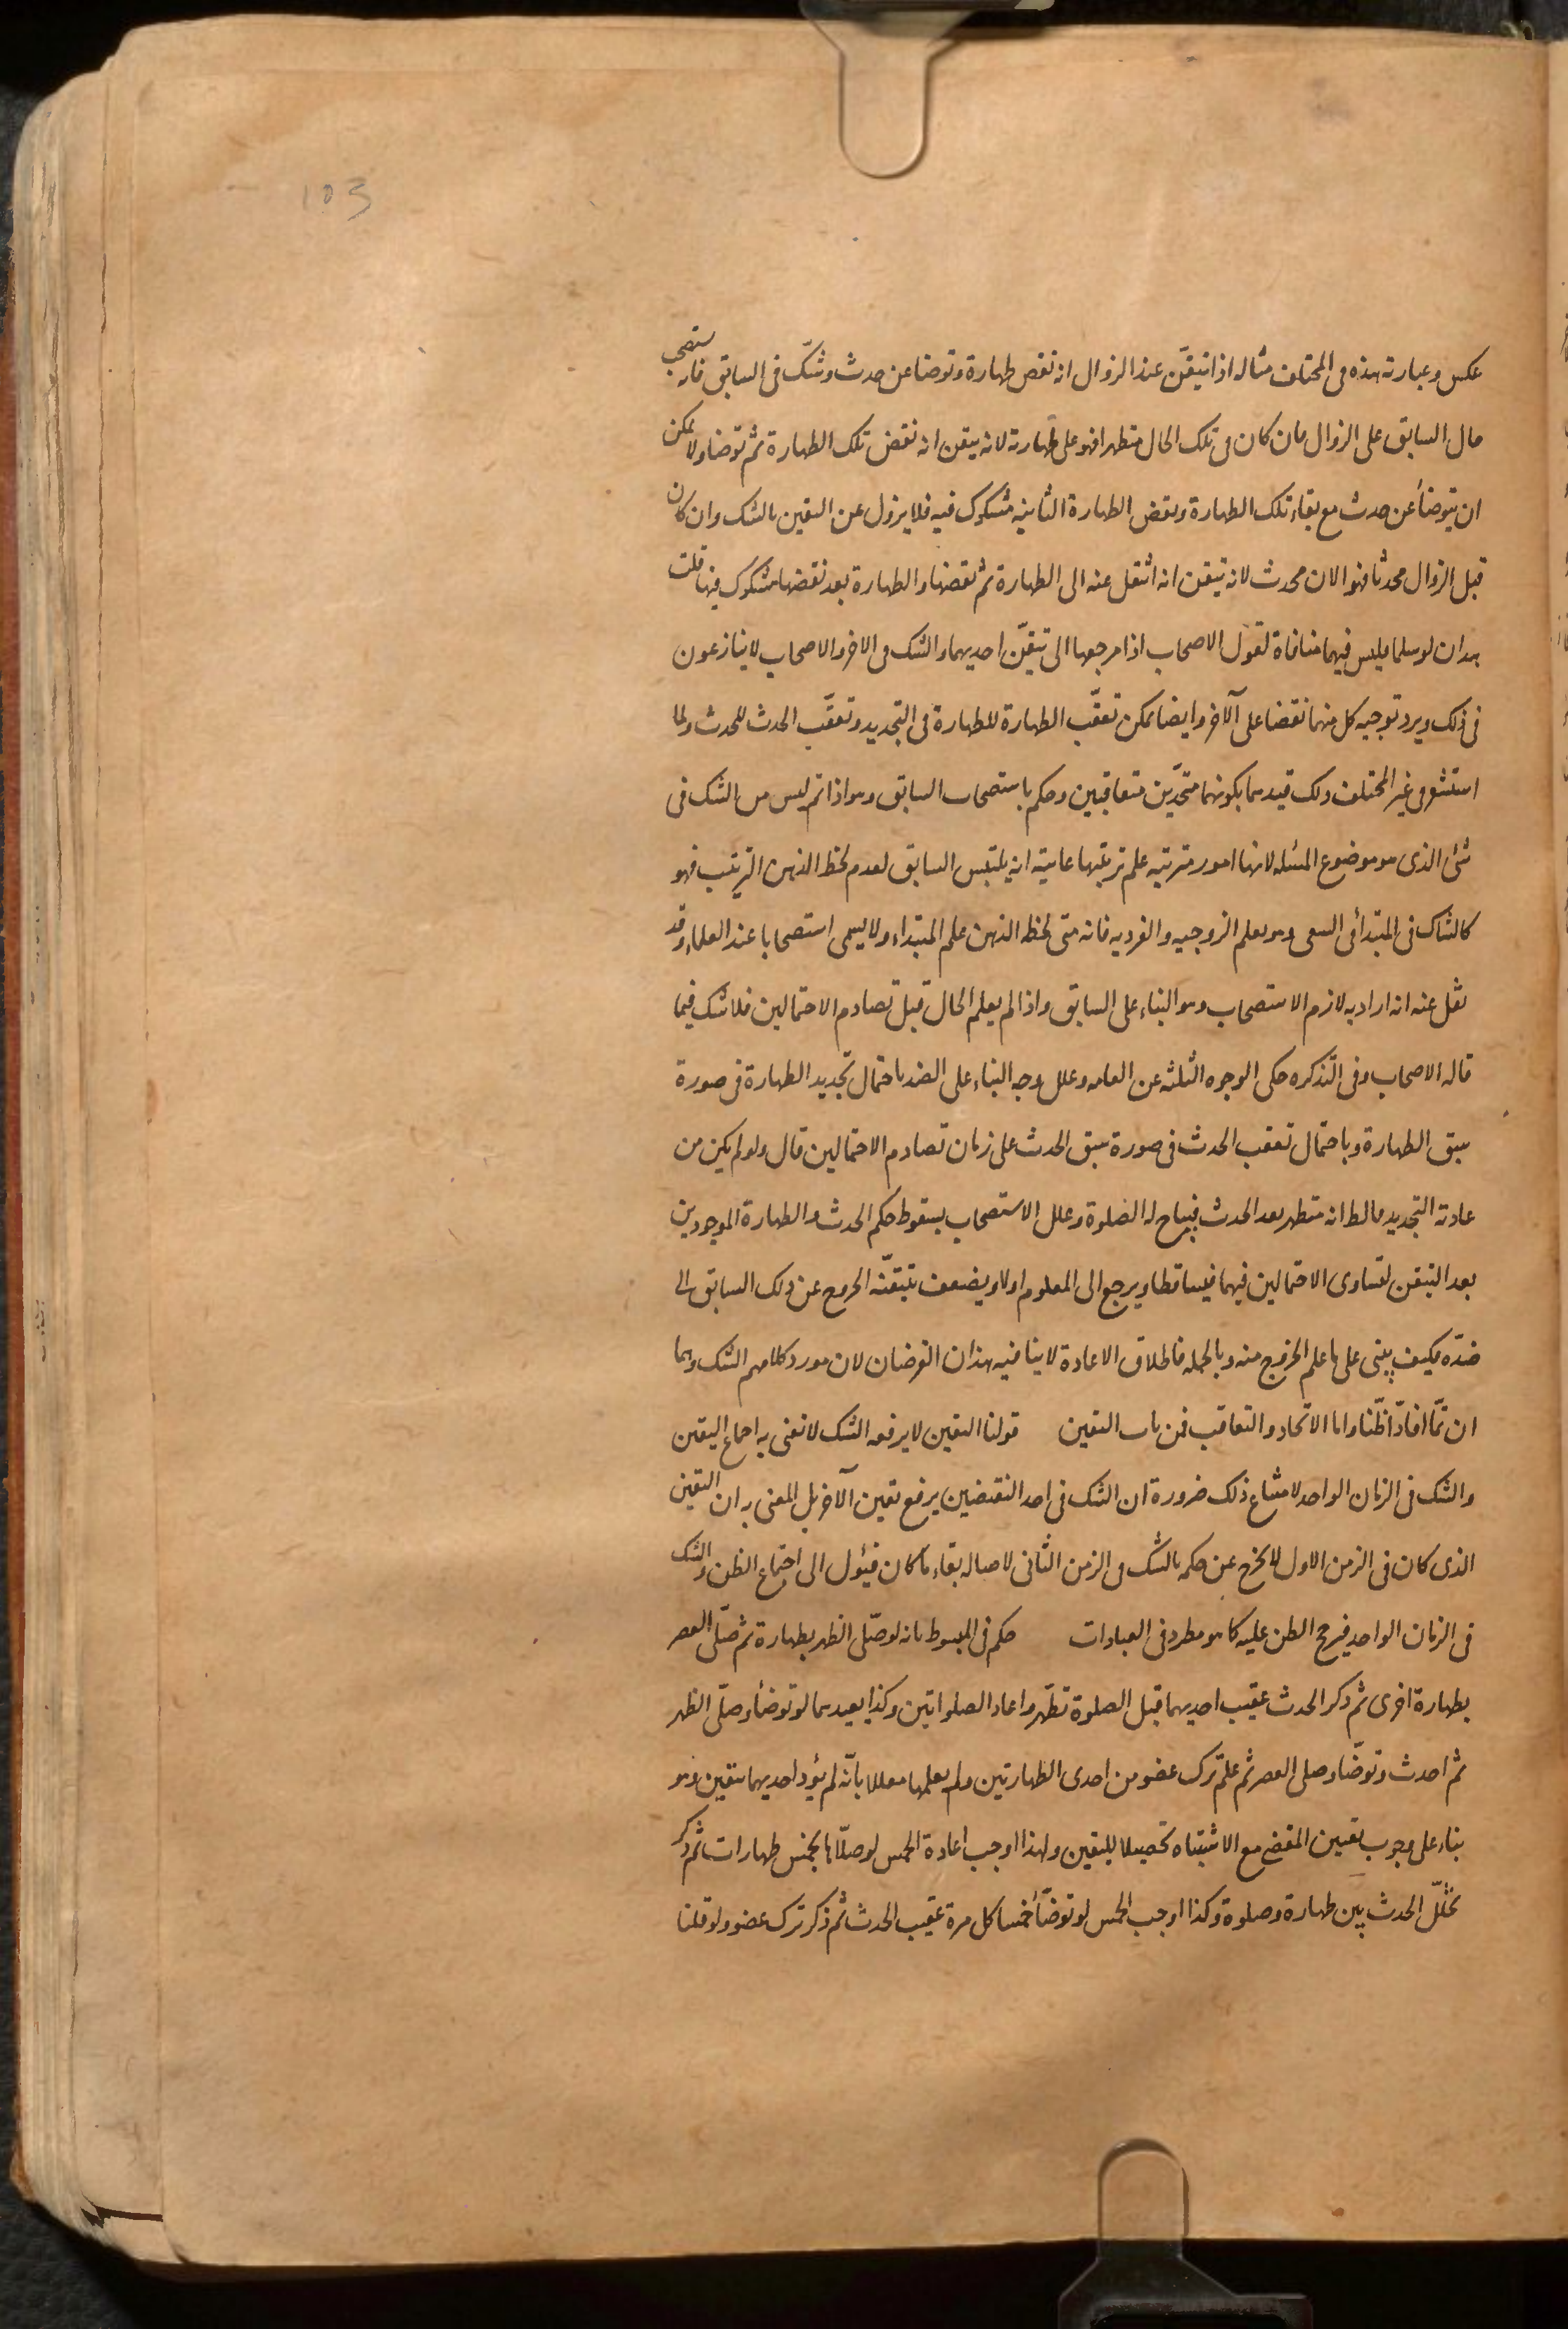 103
عكس وعبارته هذه فى المختلف مثاله اذا تيقّن عند الزوال انه نقض طهارة وتوضا عن حدث وشكّ فى السابق فانه يستصحب
حال السابق على الزوال فان كان فى تلك الحال متطهرا فهو على طهارته لانه تيقن انه نقض تلك الطهارة ثم توضا ولا يمكن
ان يتوضأ عن حدث مع بقاء تلك الطهارة ونقض الطهارة الثانيه مشكوك فيه فلا يزول عن اليقين بالشك وان كان
قبل الزوال محدثا فهو الان محدث لانه تيقن انه انتقل عنه الى الطهارة ثم نقضها والطهارة بعد نقضها مشكوك فيها قلت
هذان لو سلما فليس فيهما منافاة لقول الاصحاب اذا مرجعها الى تيقّن احديهما والشك فى الاخر والاصحاب لا ينازعون
فى ذلك ويرد توجيه كل منهما نقضا على الآخر وايضا يمكن تعقّب الطهارة للطهارة فى التجديد وتعقّب الحدث للحدث ولما
استشعر فى غير المختلف ذلك قيدهما بكونهما متحدّين متعاقبين وحكم باستصحاب السابق وهو اذا تم ليس من الشك فى
شئ الذى هو موضوع المسئله لانها امور مترتبه علم ترتبها غايته انه يلتبس السابق لعدم لحظ الذهن الترتيب فهو
كالشاك فى المبتدأ فى السعى وهو يعلم الزوجيه والفرديه فانه متى لحظ الذهن علم المبتداء ولا يسمى استصحابا عند العلماء وقد
نقل عنه انه اراد به لازم الاستصحاب وهو البناء على السابق واذا لم يعلم الحال قبل تصادم الاحتمالين فلا شك فيما
قاله الاصحاب وفى التذكره حكى الوجوه الثلثه عن العامه وعلل وجه البناء على الضد باحتمال تجديد الطهارة فى صورة
سبق الطهارة وباحتمال تعقب الحدث فى صورة سبق الحدث على زمان تصادم الاحتمالين قال ولو لم يكن من
عادته التجديد فالظ انه متطهر بعد الحدث فيباح له الصلوة وعلل الاستصحاب بسقوط حكم الحدث والطهارة الموجودين
بعد التيقن لتساوى الاحتمالين فيهما فيساقطا ويرجع الى المعلوم اولا ويضعف بتيقّنه الخروج عن ذلك السابق الى
ضدّه فكيف يبنى على ما علم الخروج منه وبالجمله فاطلاق الاعادة لا ينافيه هذان الفرضان لان مورد كلامهم الشك وهما
ان تمّا افادّا ظنّا واما الاتحاد والتعاقب فمن باب اليقين قولنا اليقين لا يرفعه الشك لا نعنى به اجماع اليقين
والشك فى الزمان الواحد لامتناع ذلك ضرورة ان الشك فى احد النقيضين يرفع يقين الآخر بل المعنى به ان اليقين
الذى كان فى الزمن الاول لا يخرج عن حكمه بالشك فى الزمن الثانى لاصالة بقاء ما كان فيئول الى اجتماع الظن والشك
فى الزمان الواحد فيرجح الظن عليه كما هو مطرد فى العبادات حكم فى المبسوط بانه لو صلّى الظهر بطهارة ثم صلّى العصر
بطهارة اخرى ثم ذكر الحدث عقيب احديهما قبل الصلوة تطهّر واعاد الصلواتين وكذا يعيدهما لو توضأ وصلّى الظهر
ثم احدث وتوضّا وصلى العصر ثم علم ترك عضو من احدى الطهارتين ولم يعلمها معللا بانّه لم يؤد احديهما بيقين وهو
بناء على وجوب تعيين المقضى مع الاشتباه تحصيلا لليقين ولهذا اوجب اعادة الخمس لو صلّاها بخمس طهارات ثم ذكر
تخلّل الحدث بين طهارة وصلوة وكذا اوجب الخمس لو توضّأ خمسا كل مرة عقيب الحدث ثم ذكر ترك عضو ولو قلنا